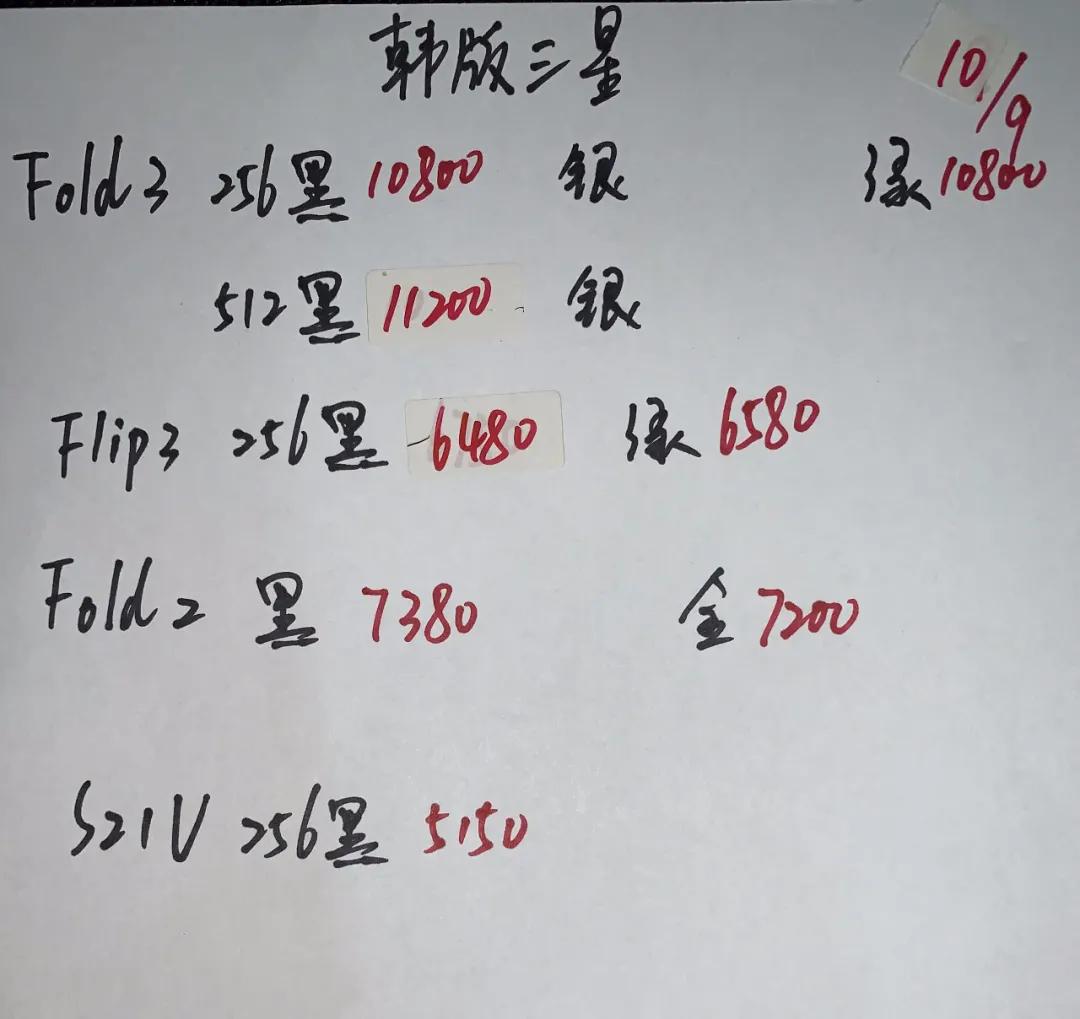 韩版三星
10/9
Fold3 256黑 10800 银 绿 10800
512黑 11200 银
Flip3 256黑 6480 绿 6580
Fold2 黑 7380 金 7200
S21U 256黑 5150